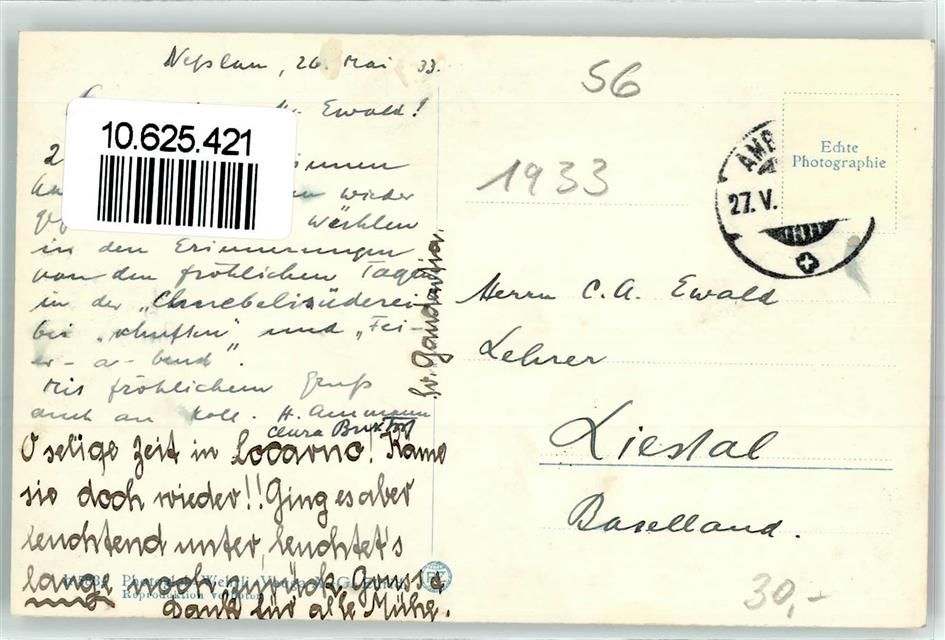 Neßlau, 26. Mai 33.
Ewald!
10.625.421
2
innen
wieder
wühlen
in den Erinnerungen
von den fröhlichen Tagen
in der "Chnebelisüderei"
bei "chnuflen" und "Fei-
er-a-bend".
Mit fröhlichem Gruß
auch an Koll. H. Ammann
Clara
O selige Zeit in Locarno! Käme
sie doch wieder!! Ging es aber
leuchtend unter, leuchtet's
lange noch zurück. Gruss &
Dank für alle Mühe.
Photogr. Wehrli
Reproduktion verboten
56
1933
AMP
27.V.
Echte
Photographie
Herrn C. A. Ewald
Lehrer
Liestal
Baselland.
30,-